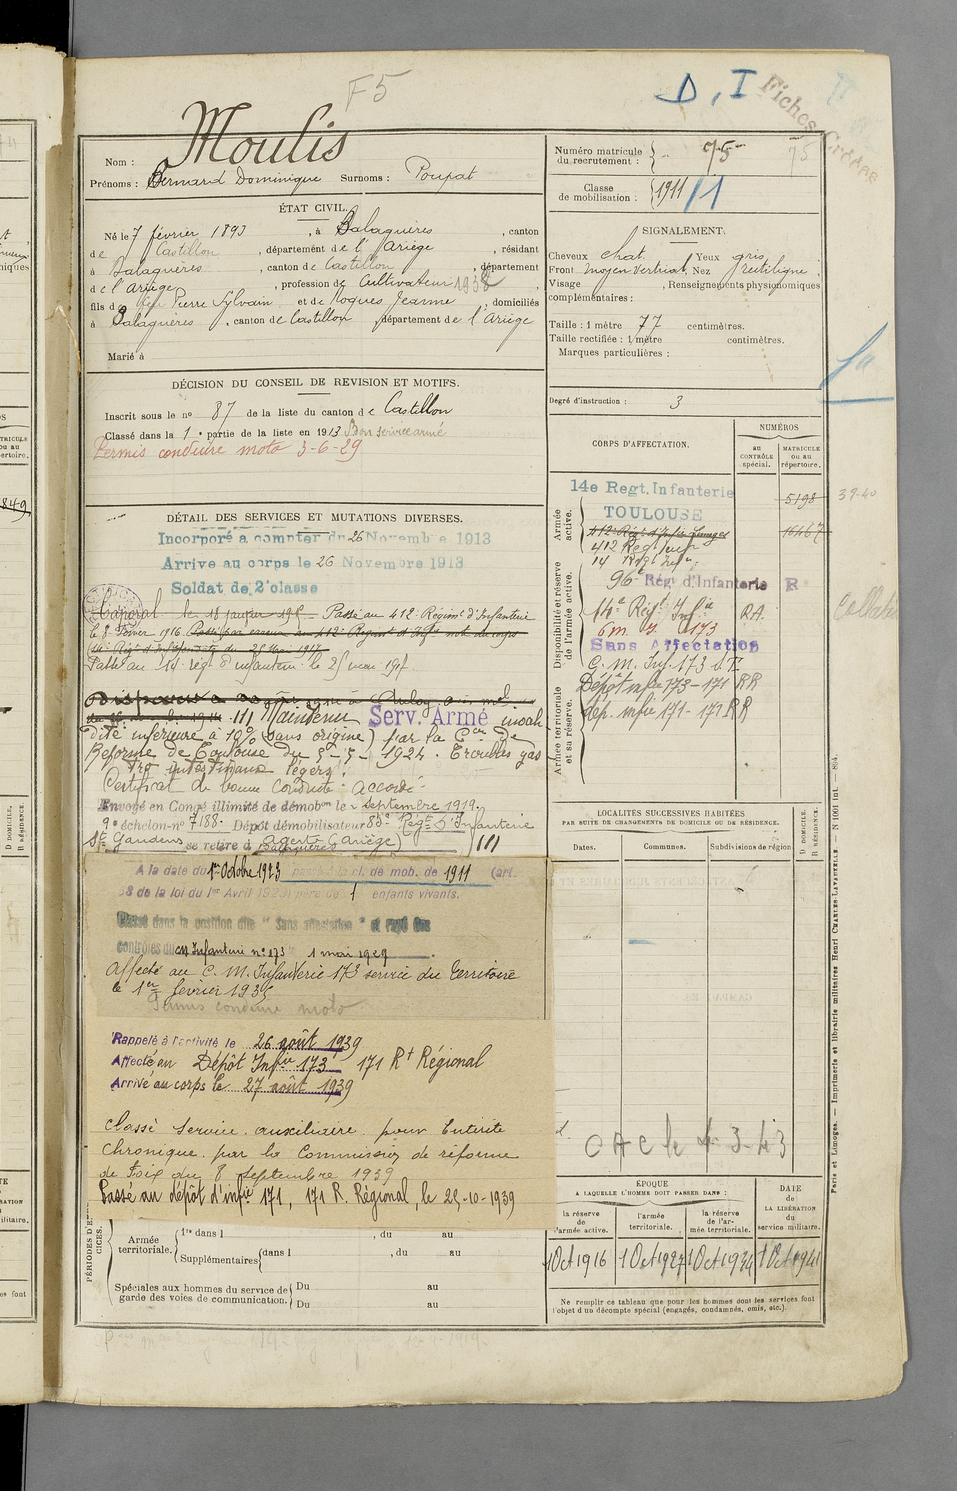 F5
D, I
Fiches
Moulis
Nom :
Prénoms : Bernard Dominique Surnoms : Poupat
Numéro matricule du recrutement : 75
75
Classe de mobilisation : 1911 / 1
ÉTAT CIVIL.
Né le 7 février 1893, à Balaguères, canton
de Castillon, département de l'Ariège, résidant
à Balaguères, canton de Castillon, département
de l'Ariège, profession de Cultivateur 1938
fils de Pierre Sylvain et de Roques Jeanne, domiciliés
à Balaguères, canton de Castillon, département de l'Ariège
Marié à
SIGNALEMENT.
Cheveux chat. Yeux gris
Front moyen vertical, Nez rectiligne
Visage , Renseignements physionomiques
complémentaires :
Taille : 1 mètre 77 centimètres.
Taille rectifiée : 1 mètre centimètres.
Marques particulières :
Degré d'instruction : 3
DÉCISION DU CONSEIL DE REVISION ET MOTIFS.
Inscrit sous le no 87 de la liste du canton de Castillon
Classé dans la 1e partie de la liste en 1913 Bon service armé
Permis conduire moto 3-6-29
DÉTAIL DES SERVICES ET MUTATIONS DIVERSES.
Incorporé à compter du 26 Novembre 1913
Arrivé au corps le 26 Novembre 1913
Soldat de 2e classe
Caporal le 18 janvier Passé au 412e Régimt d'Infanterie
le 8 Février 1916
Passé au 14e rég. d'infanterie le 25 mai
Maintenu Serv. Armé
dité inférieure à 10% (sans origine) par la Con de
Réforme de Toulouse du 5-5-1924. Troubles gas
tro intestinaux légers.
Certificat de bonne conduite : accordé
Envoyé en Congé illimité de démobon le septembre 1919.
9e échelon no 7188 Dépôt démobilisateur 83e Régt d'Infanterie
St Gaudens se retire à Agert (Ariège)
A la date du 1er Octobre 1923 passé à la cl. de mob. de 1911 (art.
58 de la loi du 1er Avril 1923) père de 1 enfants vivants.
Classé dans la position dite "Sans affectation" et rayé des
contrôles du CM Infanterie no 173 le 1 mai 1929.
Affecté au C. M. Infanterie 173 service du territoire
le 1er février 1935
Permis conduire moto
Rappelé à l'activité le 26 août 1939
Affecté au Dépôt Infie 173 171 Rt Régional
Arrivé au corps le 27 août 1939
Classé service auxiliaire pour Entérite
Chronique par la Commission de réforme
de Foix du 8 septembre 1939
Passé au dépôt d'infie 171, 171 R. Régional, le 25-10-1939
PÉRIODES D'EXERCICES.
Armée territoriale.
1re dans l , du au
Supplémentaires dans l , du au
Spéciales aux hommes du service de garde des voies de communication.
Du au
Du au
CORPS D'AFFECTATION.
NUMÉROS
au CONTRÔLE spécial.
MATRICULE ou au répertoire.
Armée active.
14e Regt. Infanterie 5198
TOULOUSE
16467
412 Régt Inf
14 Régt Infie
Disponibilité et réserve de l'armée active.
96e Régt d'Infanterie R
14e Régt Infie RA
C. M. I. 173
Sans Affectation
C. M. Inf. 173 s.T.
Armée territoriale et sa réserve.
Dépôt infie 173-171 RR
dép. infie 171-171 RR
39-40
LOCALITÉS SUCCESSIVES HABITÉES
PAR SUITE DE CHANGEMENTS DE DOMICILE OU DE RÉSIDENCE.
Dates.
Communes.
Subdivisions de région
D DOMICILE.
R RÉSIDENCE.
CAC le 4-3-43
ÉPOQUE
A LAQUELLE L'HOMME DOIT PASSER DANS :
DATE DE LA LIBÉRATION du service militaire.
la réserve de l'armée active.
l'armée territoriale.
la réserve de l'armée territoriale.
1 Oct 1916
1 Oct 1927
1 Oct 1934
1 Oct 1941
Ne remplir ce tableau que pour les hommes dont les services font
l'objet d'un décompte spécial (engagés, condamnés, omis, etc.).
Paris et Limoges. — Imprimerie et librairie militaires Henri CHARLES-LAVAUZELLE. — N 1001 int. - 894.